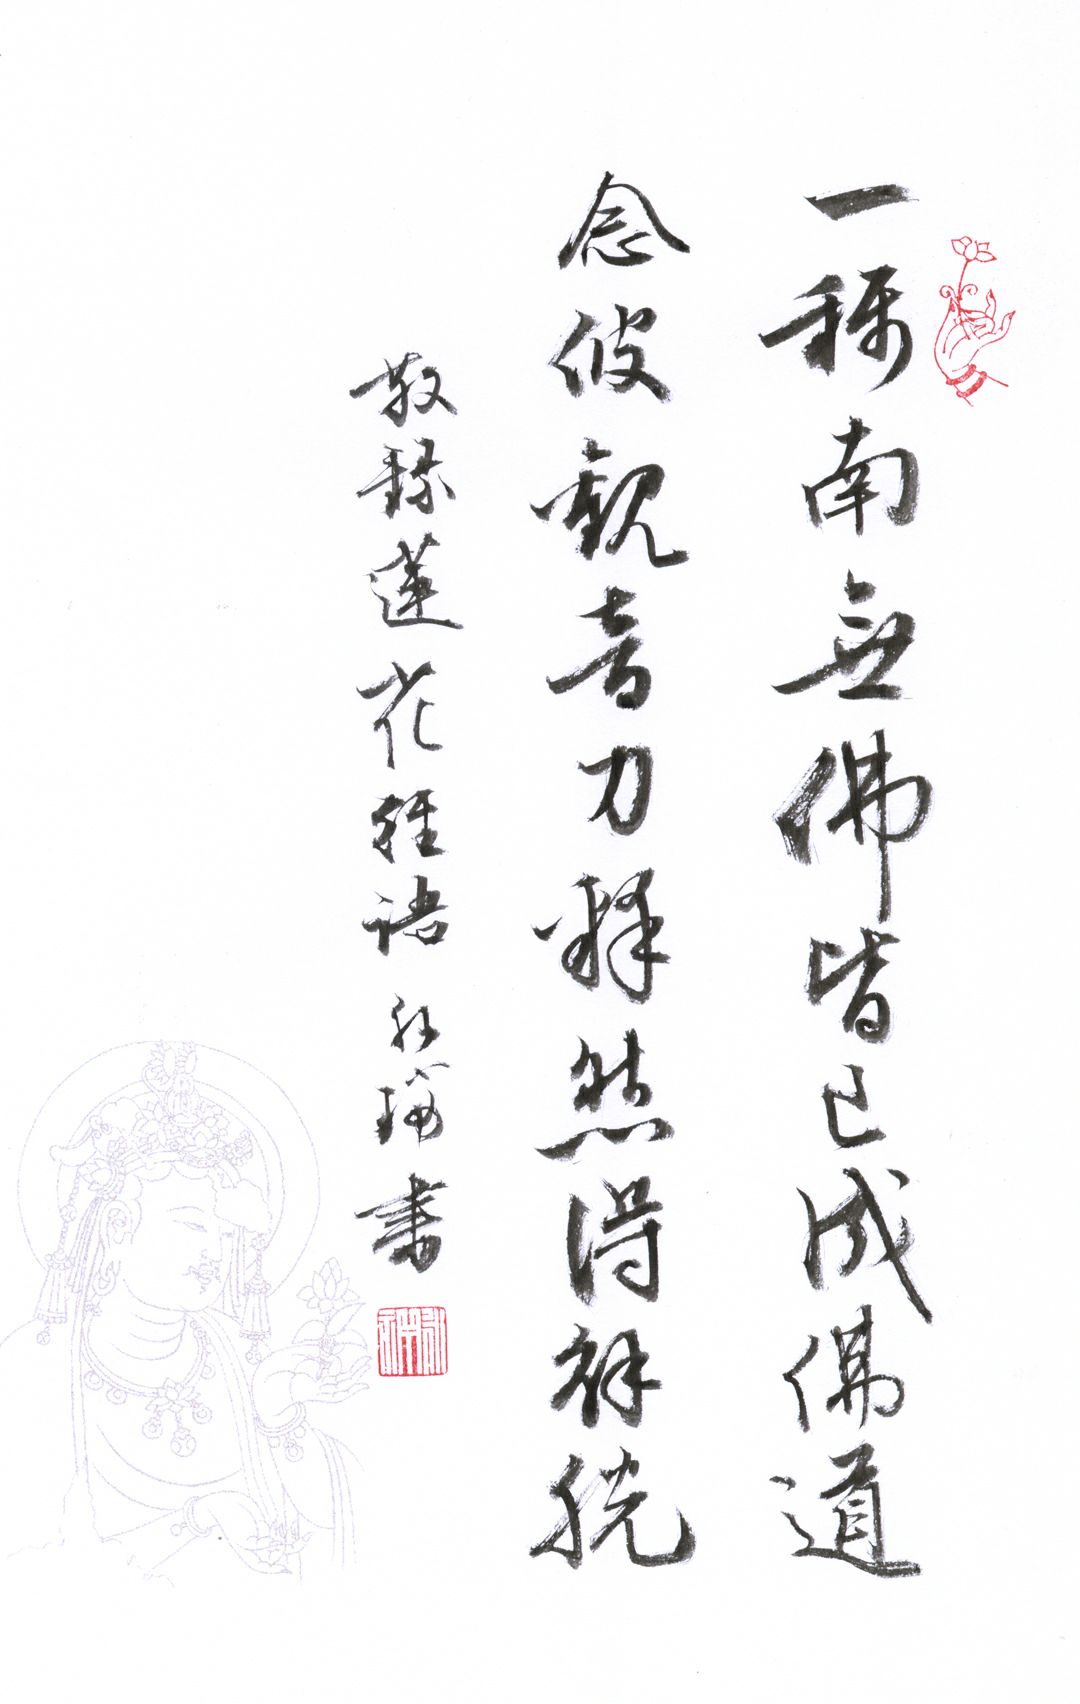 一稱南無佛皆已成佛道
念彼觀音力釋然得解脫
敬錄蓮花經語 書